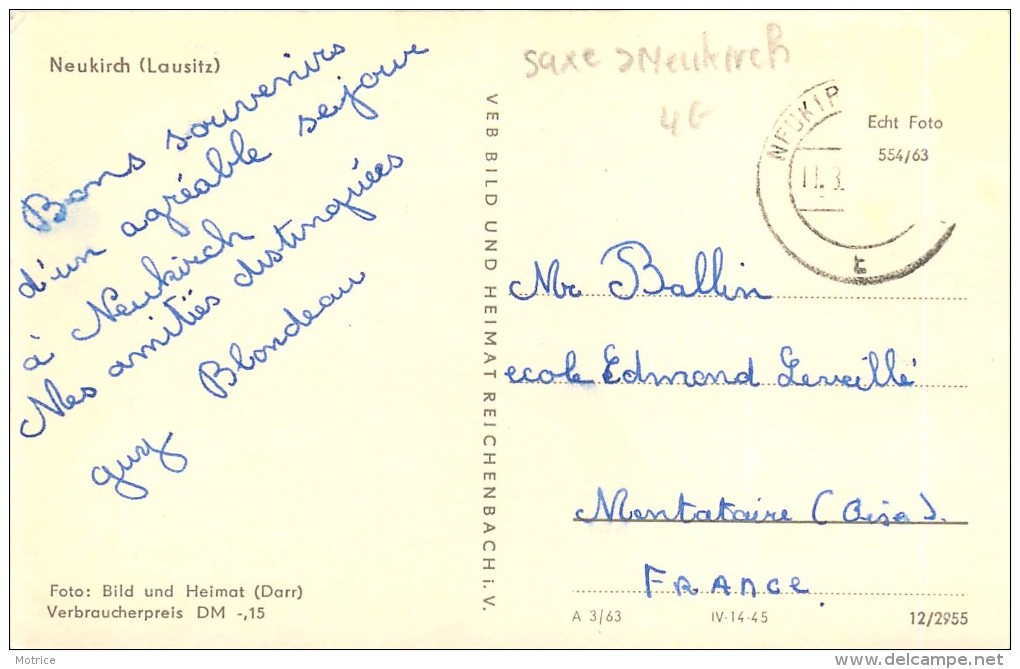 Neukirch (Lausitz)
Bons souvenirs
d'un agréable sejour
à Neukirch
Mes amitiés distinguées
guy Blondeau
Foto: Bild und Heimat (Darr)
Verbraucherpreis DM -,15
VEB BILD UND HEIMAT REICHENBACH i. V.
saxe > Neukirch
4€
NEUKIR
11. 3.
t
Echt Foto
554/63
Mr Ballin
ecole Edmond Leveillé
Montataire (Oise).
FRANCE.
A 3/63 IV-14-45 12/2955
Motrice
http://www.delcampe.net